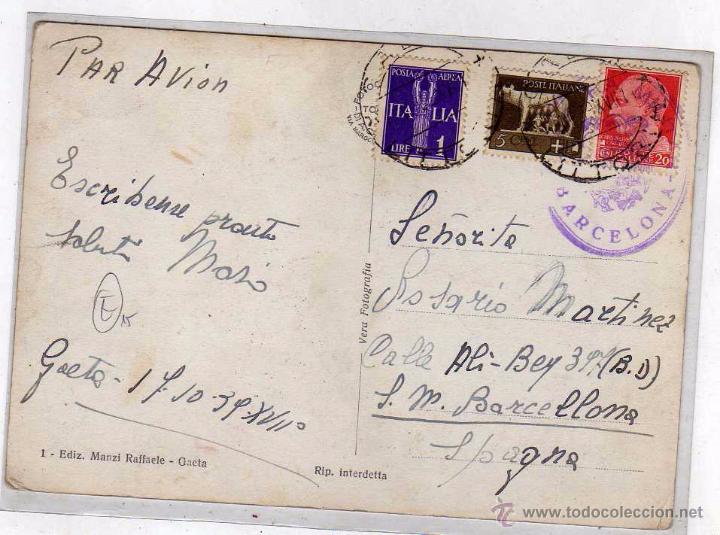 PAR AVion
Escribeme pronto
saluti Mario
E
Gaeta - 19.10.39. XVII°
1 - Ediz. Manzi Raffaele - Gaeta
Rip. interdetta
Vera Fotografia
POSTA AEREA
ITALIA
LIRE 1
POSTE ITALIANE
5 CENT
20
BARCELONA
Señorita
Rosario Martinez
Calle Ali-Bey 39 (B.D)
S. M. Barcellona
Spagna
www.todocoleccion.net